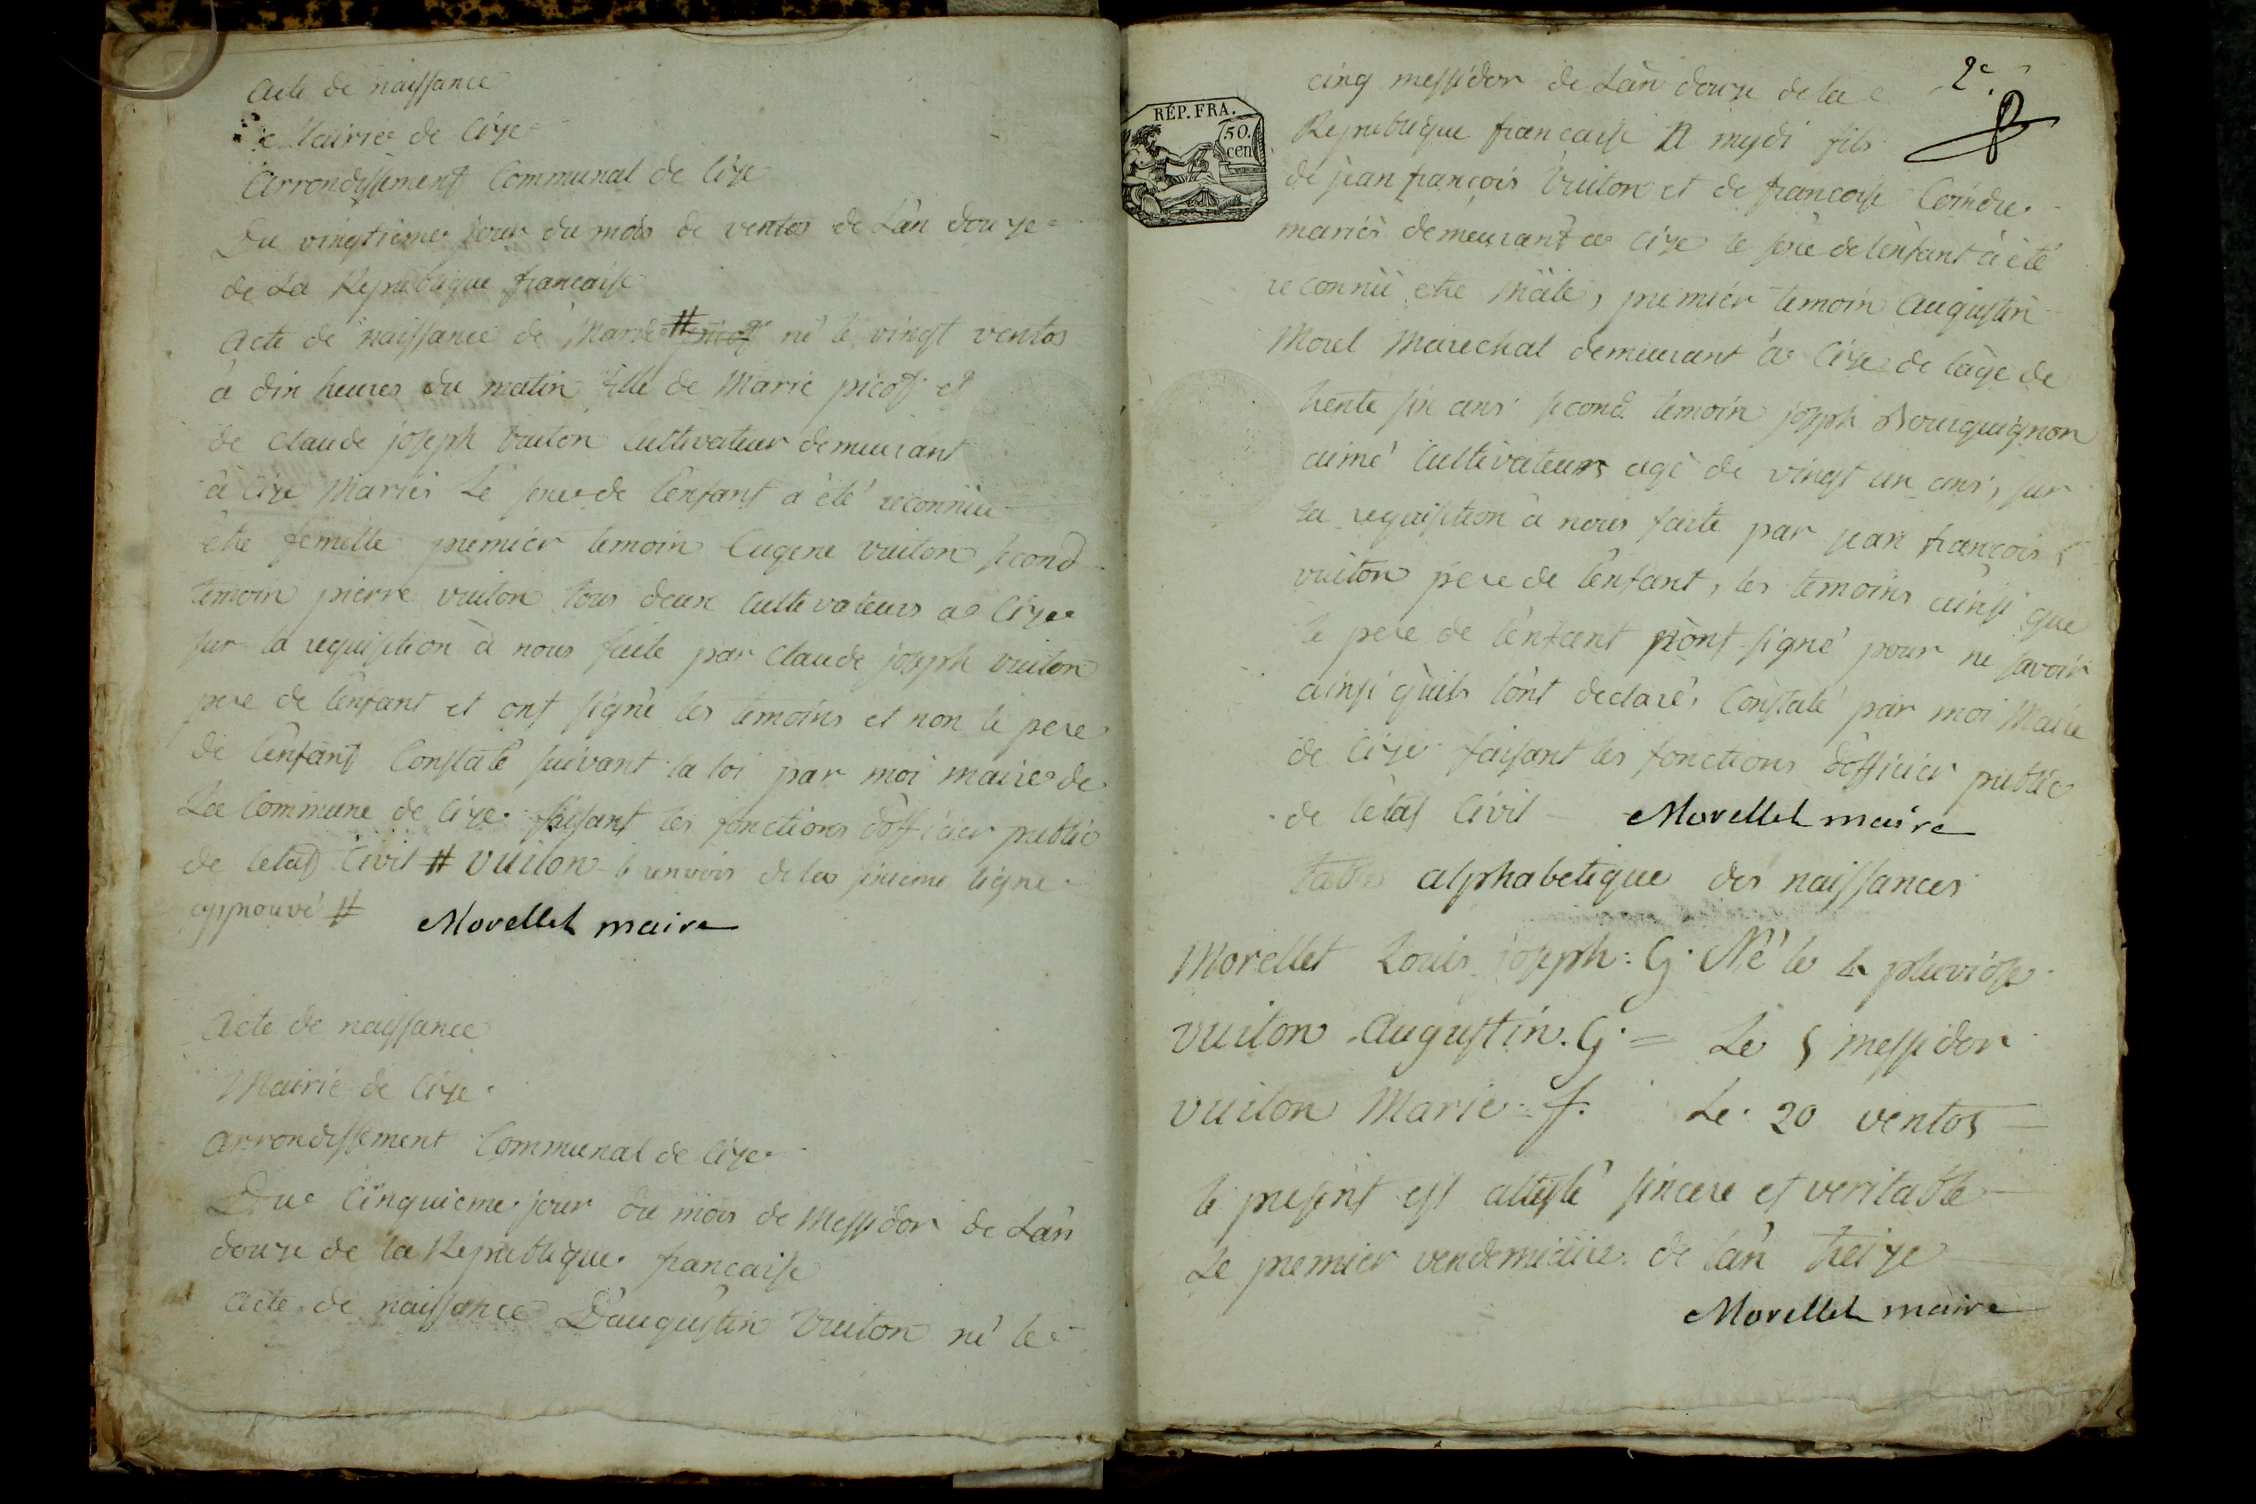 acte de naissance
Mairie de Cize
Arrondissement Communal de Cize
Du vingtieme jour du mois de ventos de L'an douze
de La Republique francaise
acte de naissance de Marie # né le vingt ventos
à dix heures du matin fille de Marie picot et
de Claude joseph vuiton cultivateur demeurant
à Cize Mariés Le sexe de l'enfant a été reconnue
être femelle premier temoin Eugene vuiton second
temoin pierre vuiton tous deux cultivateurs a Cize
sur la requisition à nous faite par Claude joseph vuiton
pere de l'enfant et ont signé les temoins et non le pere
de l'enfant Constaté suivant la loi par moi maire de
La Commune de Cize faisant les fonctions d'officier public
de l'etat Civil # vuiton le renvois de la sixieme ligne
approuvé # Morellet maire
Acte de naissance
Mairie de Cize
arrondissement Communal de Cize
Du Cinquieme jour du mois de Messidor de L'an
douze de la Republique francaise
acte de naissance D'augustin Vuiton né le
2e
cinq messidor de L'an douze de la
RÉP. FRA.
50. cen
Republique francaise A mydi fils
de jean françois Vuiton et de francoise Coindre
mariés demeurant a Cize le sexe de l'enfant à été
reconnü etre mâle, premiér temoin Augustin
Morel Marechal demeurant à Cize de l'âge de
trente six ans second temoin joseph Bourguignon
aimé Cultivateurs agé de vingt un ans, sur
la requisition à nous faite par jean françois
vuiton pere de l'enfant, les temoins ainsi que
le pere de l'enfant n'ont signé pour ne savoir
ainsi qu'ils l'ont declaré, Constaté par moi Maire
de Cize faisant les fonctions d'officier public
de l'état Civil Morellet maire
table alphabetique des naissances
Morellet Louis joseph: G. Né le 4 pluviose
vuiton Augustin. G. = Le 5 messidor
vuiton Marie: f. Le 20 ventos
le present est attesté sincere et veritable
Le premier vendemiaire de l'an treize
Morellet maire